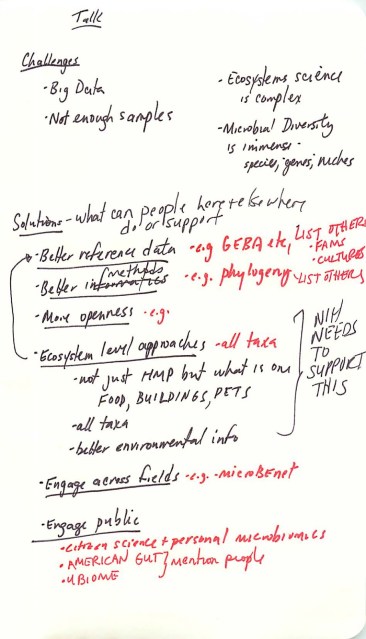 Talk
Challenges
- Big Data
- Not enough samples
- Ecosystems science
is complex
- Microbial Diversity
is immense -
species, genes, niches
Solutions - what can people here + elsewhere
do or support
- Better reference data - e.g GEBA etc, LIST OTHERS
- FAMS
- CULTURES
methods
- Better informatics - e.g. phylogeny - LIST OTHERS
- More openness - e.g.
- Ecosystem level approaches - all taxa
- not just HMP but what is on
FOOD, BUILDINGS, PETS
- all taxa
- better environmental info
NIH
NEEDS
TO
SUPPORT
THIS
- Engage across fields - e.g. - microBEnet
- Engage public
- citizen science + personal microbiomics
- AMERICAN GUT } mention people
- UBIOME